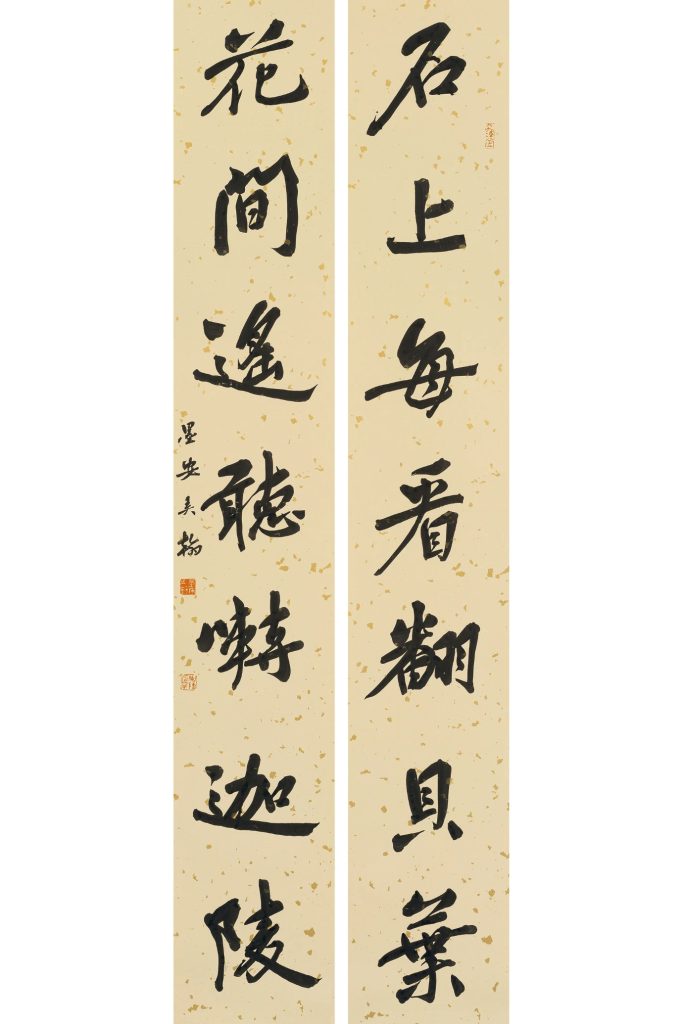 石上每看翻貝葉
花間遙聽囀迦陵
墨安